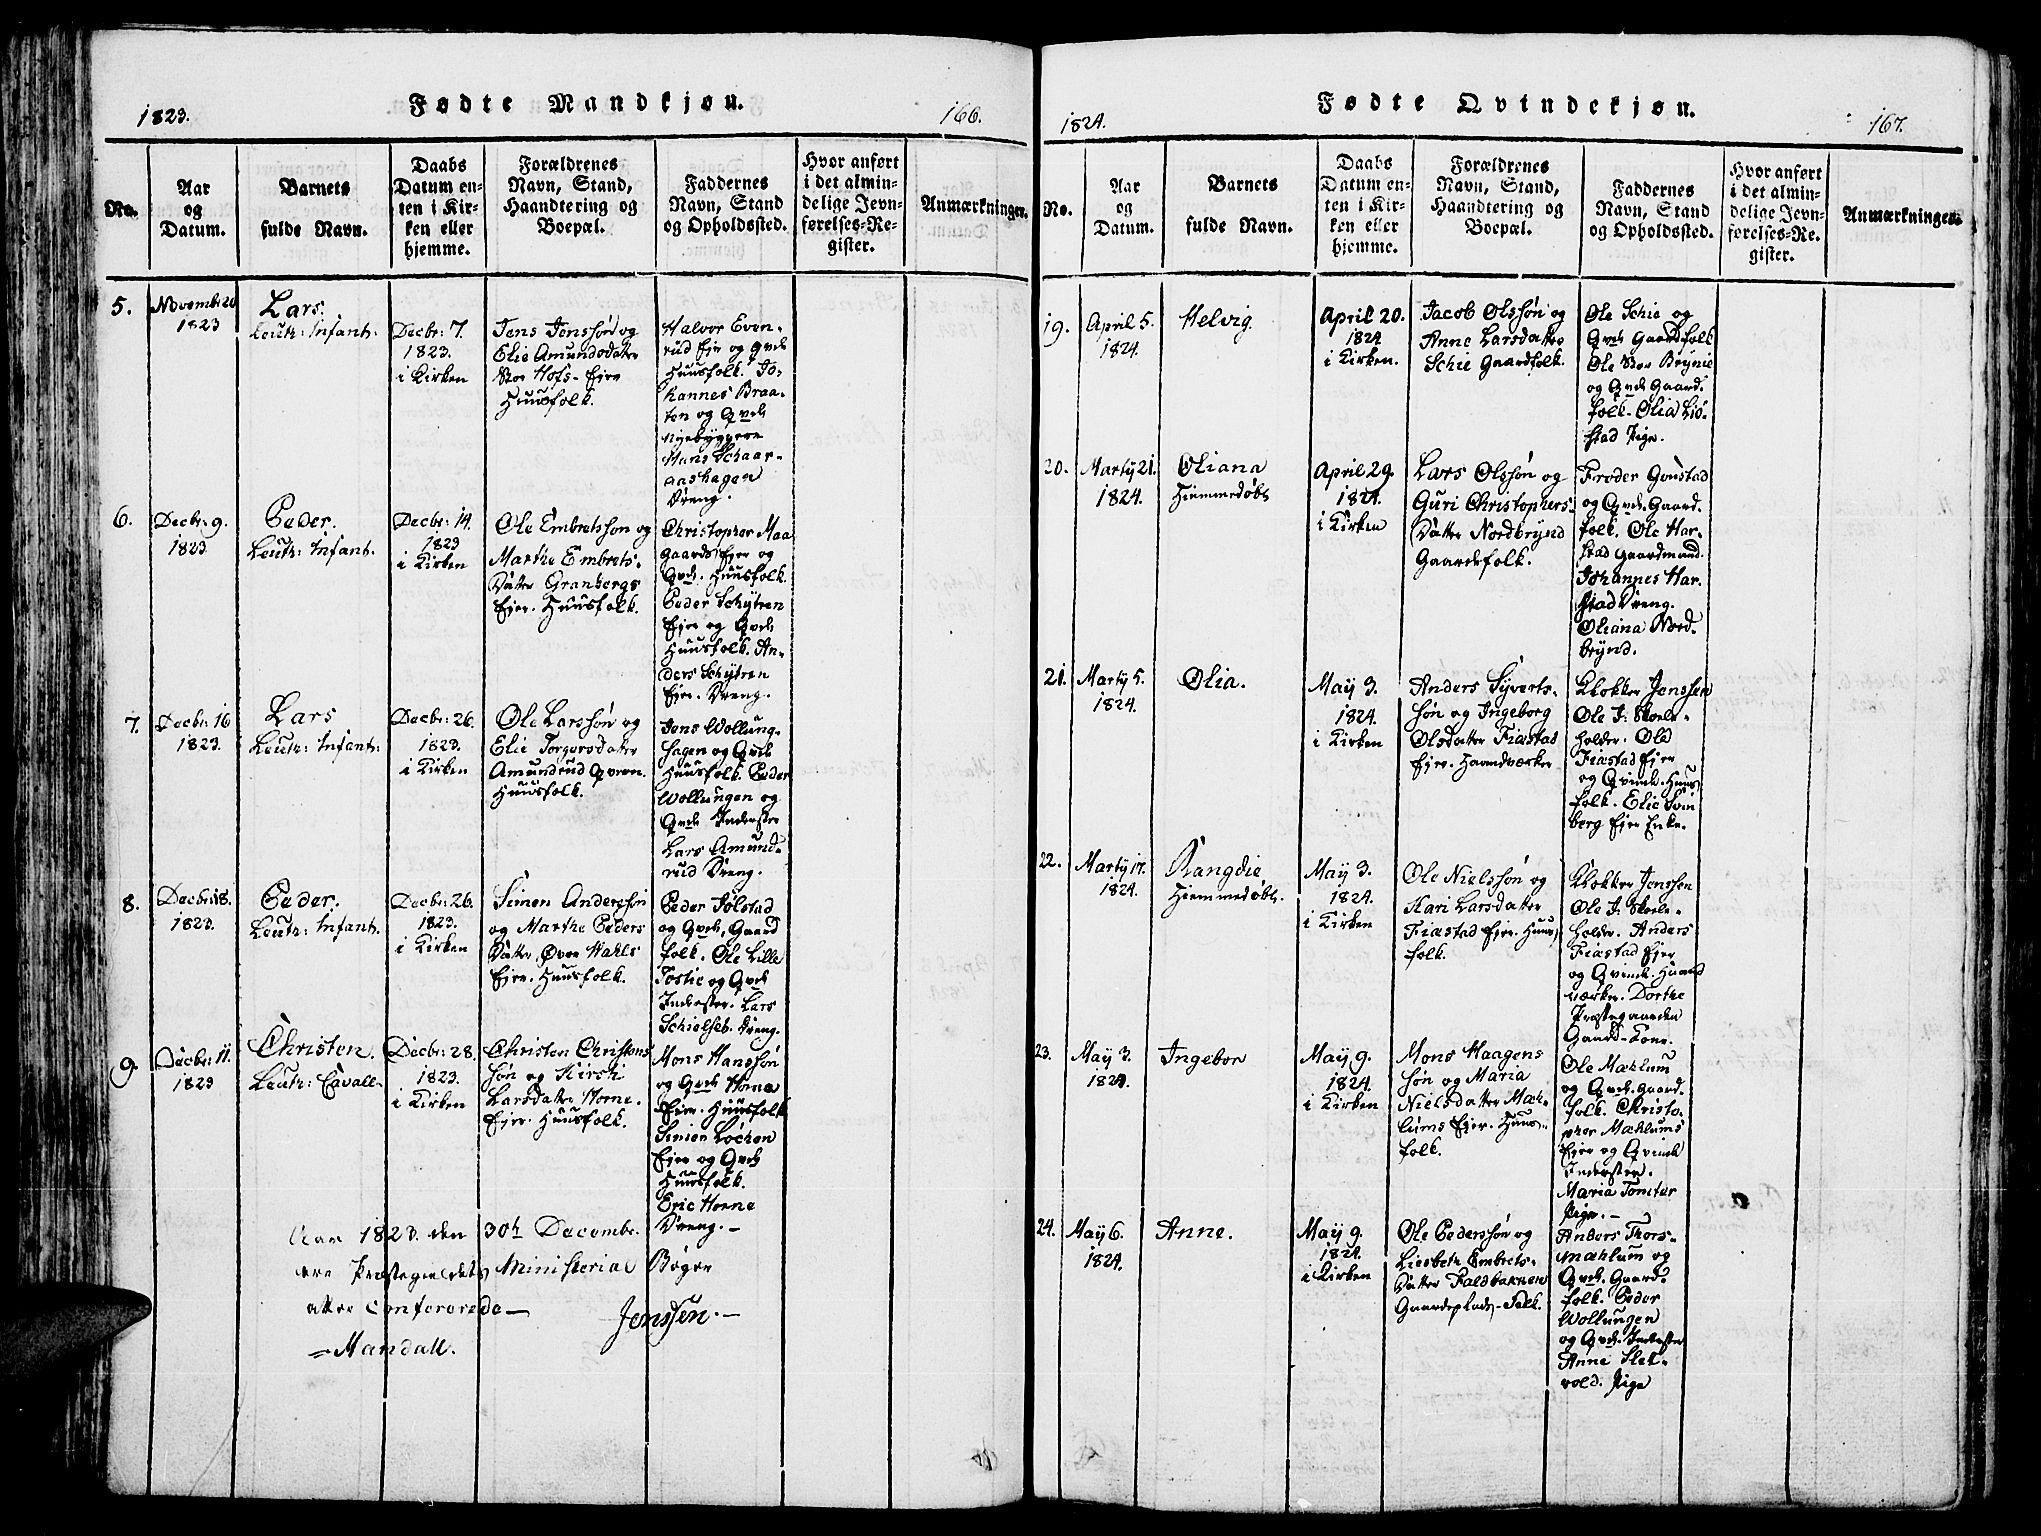 1823.
Fødte Mandkjøn.
166.
No.
Aar
og
Datum.
Barnets
fulde Navn.
Daabs
Datum en-
ten i Kir-
ken eller
hjemme.
Forældrenes
Navn, Stand,
Haandtering og
Boepæl.
Faddernes
Navn, Stand
og Opholdssted.
Hvor anført
i det almin-
delige Jevn-
førelses-Re-
gister.
Anmærkninger.
5.
Novemb: 20
1823
Lars.
Leuth: Infant:
Decbr: 7.
1823.
i Kirken
Jens Jenssøn og
Elie Amundsdatter
Stor Hofs- Ejer
Huusfolk.
Halvor Even-
rud Ejer og Qvde
Huusfolk. Jo-
hannes Braa-
ten og Qvde
Nyebyggere
Hans Schaar-
aashagen
Dreng.
6.
Decbr: 9.
1823.
Peder.
Leuth: Infant.
Decbr: 14.
1823
i Kirken
Ole Embretssøn og
Marthe Embrets-
Datter Granbergs
Ejer. Huusfolk.
Christopher Maa
Gaards Ejer og
Qvde. Huusfolk.
Peder Schytren
Ejer og Qvde
Huusfolk. An-
ders Schytren
Ejer. Dreng.
7.
Decbr: 16
1823.
Lars
Leuth: Infant:
Decbr: 26.
1823.
i Kirken
Ole Larssøn og
Elie Torgersdatter
Amundrud Qvern.
Huusfolk.
Jens Wollung-
hagen og Qvde
Huusfolk. Peder
Wollungen og
Qvde Inderster
Lars Amund-
rud Dreng.
8.
Decbr: 18.
1823.
Peder.
Leuth: Infant.
Decbr: 26.
1823.
i Kirken
Simen Anderssøn
og Marthe Peders
Datter Øvre Mahls
Ejer. Huusfolk.
Peder Jølstad
og Qvde, Gaard
folk. Ole Lille
Tostie og Qvde
Inderster. Lars
Schielseb. Dreng.
9.
Decbr: 11.
1823
Christen.
Leuth: Cavall-
Decbr: 28.
1823.
i Kirken
Christen Christens
søn og Kirsti
Larsdatter Horne.
Ejer. Huusfolk.
Mons Hanssøn
og Qvde Horne
Ejer. Huusfolk
Simen Løchen
Ejer og Qvde
Huusfolk.
Eric Horne
Dreng.-
Aar 1823. den 30th December
ere Præstegieldets Ministerial Bøger
atter Confererede-
Jenssen.-
=Mandall.
1824.
Fødte Qvindekjøn.
167.
No.
Aar
og
Datum.
Barnets
fulde Navn.
Daabs
Datum en-
ten i Kir-
ken eller
hjemme.
Forældrenes
Navn, Stand,
Haandtering og
Boepæl.
Faddernes
Navn, Stand
og Opholdssted.
Hvor anført
i det almin-
delige Jevn-
førelses-Re-
gister.
Anmærkninger.
19.
April 5.
1824.
Helvig.
April 20.
1824
i Kirken.
Jacob Olssøn og
Anne Larsdatter
Schie Gaardfolk.
Ole Schie og
Qvde Gaardfolk
Ole Stor Brynie
og Qvde Gaard-
folk- Olia Liø-
stad Pige.
20.
Marty 21.
1824.
Oliana
Hiemmedøbt
April 29.
1824.
i Kirken
Lars Olssøn og
Guri Christophers-
Datter Nordbrynd
Gaardefolk.
Froder Gonstad
og Qvde. Gaard-
folk. Ole Har-
stad Gaardmand.
Johannes Har-
stad Dreng.
Oliana Nord-
brynd.
21.
Marty 5.
1824.
Olia.
May 3.
1824.
i Kirken
Anders Syverts-
søn og Ingeborg
Olsdatter Fiæstad
Ejer. Haandværker
Klokker Jenssen
Ole J: Skoele-
holder. Ole
Fiæstad Ejer
og Qvinde. Huus
folk. Elie Svei
berg Ejer Enke.
22.
Marty 17.
1824.
Rangdie
Hiemmedøbt.
May 3.
1824.
i Kirken
Ole Nielssøn og
Kari Larsdatter
Fiæstad Ejer. Huus
folk.
Klokker Jenssen
Ole J: Skoele-
holder. Anders
Fiæstad Ejer
og Qvinde. Haand
værker. Dorthe
Præstegaarden
Gaard-Kone.
23.
May 3.
1824.
Ingebor
May 9.
1824.
i Kirken
Mons Haagens
søn og Maria
Nielsdatter Mæh-
lums Ejer. Huus-
folk.
Ole Mæhlum
og Qvde. Gaard-
folk. Christo-
pher Mæhlums
Ejer og Qvinde
Inderster.
Maria Tomter
Pige.-
24.
May 6.
1824.
Anne.
May 9.
1824.
i Kirken
Ole Pederssøn og
Liesbeth Embrets-
Datter Faldbakken
Gaardeplads-Folk.
Anders Thors-
Mæhlum og
Qvde. Gaard-
folk. Peder
Wollungen
og Qvde. Inderster
Anne Slet-
vold. Pige